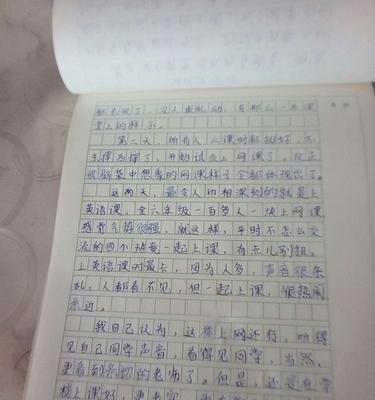 都来晚了，没人敢乱动，有那么一点课
堂上的样子。
第二天，所有人上课时都挺好，不
东摸西摸了，开始试点上网课了。反正
我脑袋中想象的网课样子全都体现出了。
这两天，最令人印相深刻的就是上
英语课，全六年级一百多人一块上网课
感觉气势很强，就这样，平时不怎么交
流的四个班竟一起上课，有点儿别扭。
上英语课时最卡，因为人多，声音很杂
乱，人都看不见，但一起上课，很热闹
亲近。
我自己认为，这样上网还行，听得
见自己同学声音，看得见同学，当然，
更看到亲切的老师了。但是，还是在学
校上课好，更